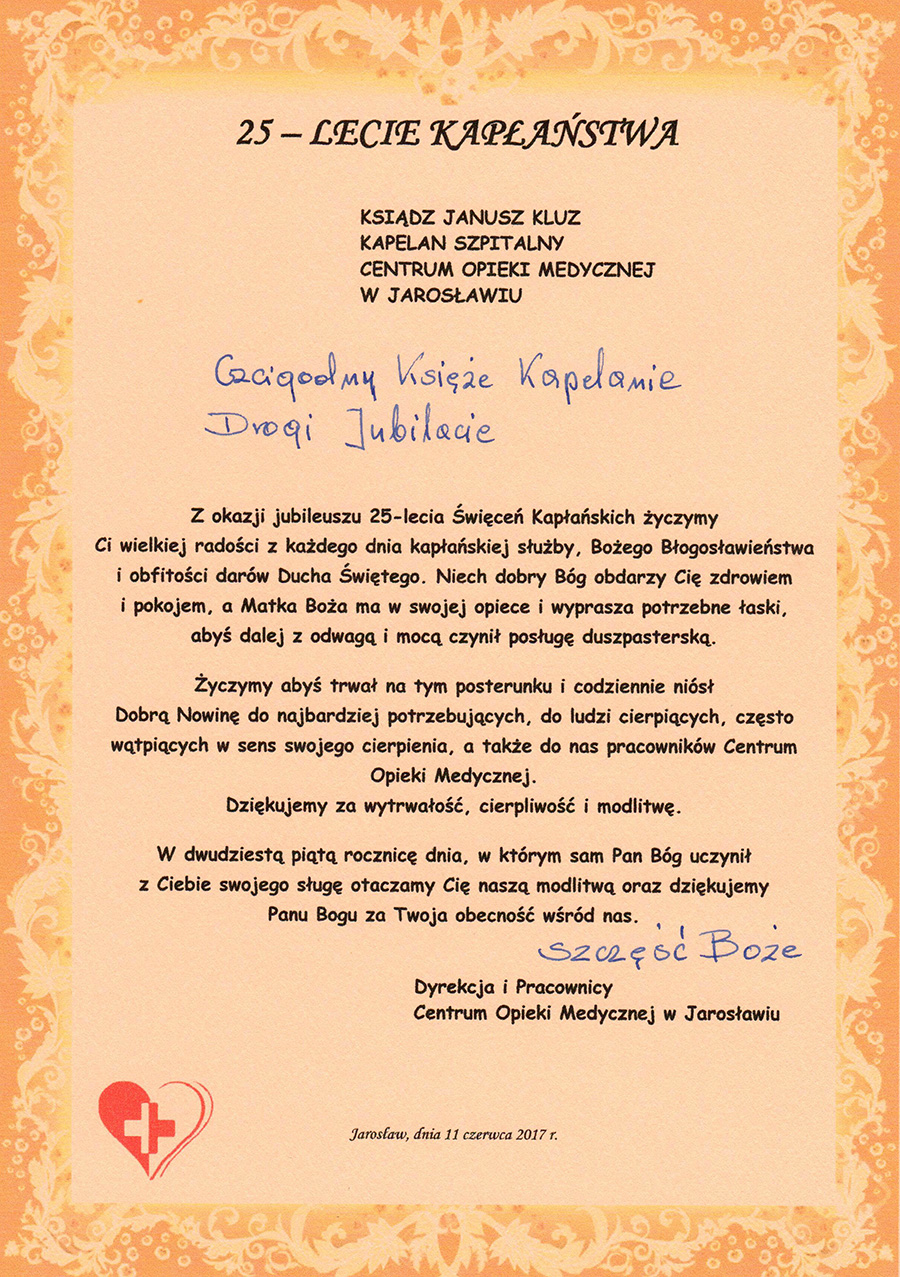 25 – LECIE KAPŁAŃSTWA
KSIĄDZ JANUSZ KLUZ
KAPELAN SZPITALNY
CENTRUM OPIEKI MEDYCZNEJ
W JAROSŁAWIU
Czcigodny Księże Kapelanie
Drogi Jubilacie
Z okazji jubileuszu 25-lecia Święceń Kapłańskich życzymy
Ci wielkiej radości z każdego dnia kapłańskiej służby, Bożego Błogosławieństwa
i obfitości darów Ducha Świętego. Niech dobry Bóg obdarzy Cię zdrowiem
i pokojem, a Matka Boża ma w swojej opiece i wyprasza potrzebne łaski,
abyś dalej z odwagą i mocą czynił posługę duszpasterską.
Życzymy abyś trwał na tym posterunku i codziennie niósł
Dobrą Nowinę do najbardziej potrzebujących, do ludzi cierpiących, często
wątpiących w sens swojego cierpienia, a także do nas pracowników Centrum
Opieki Medycznej.
Dziękujemy za wytrwałość, cierpliwość i modlitwę.
W dwudziestą piątą rocznicę dnia, w którym sam Pan Bóg uczynił
z Ciebie swojego sługę otaczamy Cię naszą modlitwą oraz dziękujemy
Panu Bogu za Twoja obecność wśród nas.
Szczęść Boże
Dyrekcja i Pracownicy
Centrum Opieki Medycznej w Jarosławiu
Jarosław, dnia 11 czerwca 2017 r.